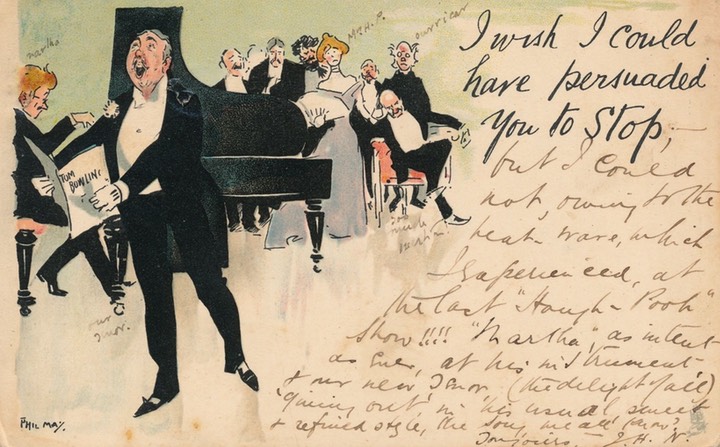 I wish I could
have persuaded
You to Stop,—
but I could
not, owing to the
heat-wave, which
I experienced, at
the last "Hough-Pooh"
show!!!! "Martha", as intent
as Ever, at his instrument
& our new Tenor (the delight of all)
"giving out" in his usual, sweet
& refined style, the song we all
Toujours, J. H. W.
martha
Mr. H. P.
our vicar
TOM BOWLING
too much
our
Tenor.
PHIL MAY.